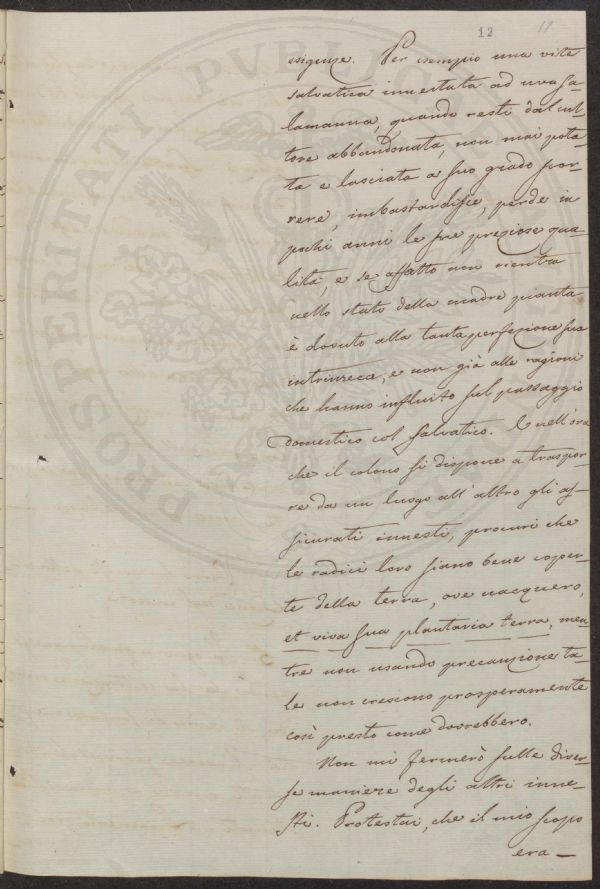 12 11
esigenze. Per esempio una vite
salvatica innestata ad uva sa-
lamanna, quando resti dal cul-
tore abbandonata, non mai pota-
ta e lasciata a suo grado scor-
rere, imbastardisce, perde in
pochi anni le sue preziose qua-
lità, e se affatto non rientra
nello stato della madre pianta
è dovuto alla tanta perfezione sua
intrinseca, e non già alle ragioni
che hanno influito sul passaggio
domestico col salvatico. Quell'ora
che il colono si dispone a traspor-
re da un luogo all'altro gli as-
sicurati innesti, procuri che
le radici loro siano bene coper-
te della terra, ove nacquero,
et viva sua plantaria terra, men-
tre non usando precauzione ta-
le non crescono prosperamente
così presto come dovrebbero.
Non mi fermerò sulle diver-
se maniere degli altri inne-
sti. Protestai, che il mio scopo
era —
PROSPERITATI PVBLICAE